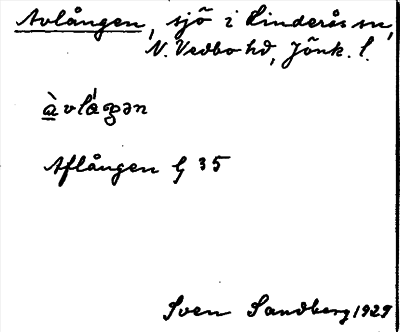 Avlången, sjö i Hinderås sn,
N. Vedbo hd, Jönk. l.
Aflången G 35
Sven Sandberg 1929